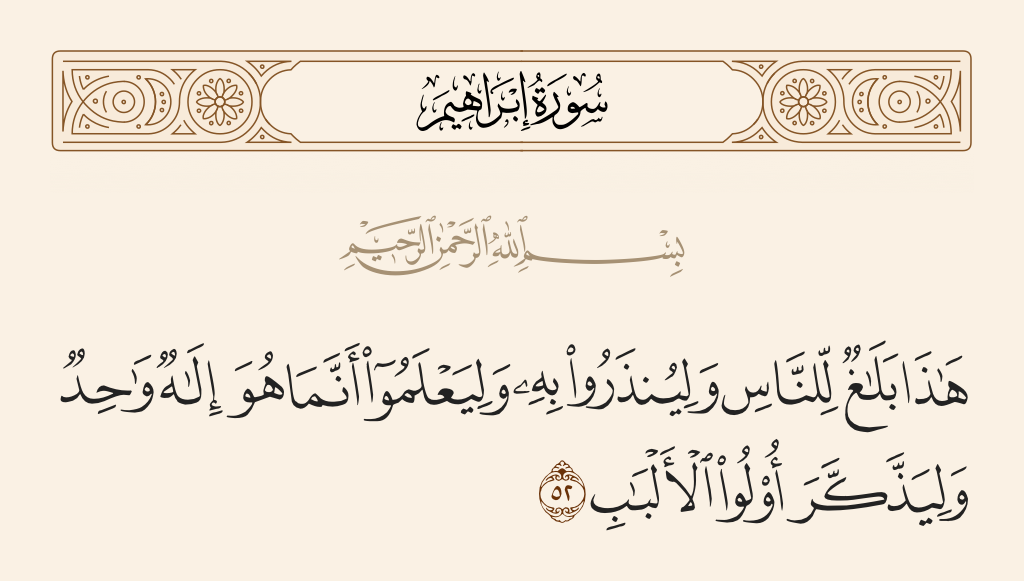 سُورَةُ إِبْرَاهِيمَ
بِسْمِ ٱللَّهِ ٱلرَّحْمَٰنِ ٱلرَّحِيمِ
هَٰذَا بَلَٰغٌ لِّلنَّاسِ وَلِيُنذَرُوا۟ بِهِۦ وَلِيَعْلَمُوٓا۟ أَنَّمَا هُوَ إِلَٰهٌ وَٰحِدٌ
وَلِيَذَّكَّرَ أُو۟لُوا۟ ٱلْأَلْبَٰبِ ٥٢